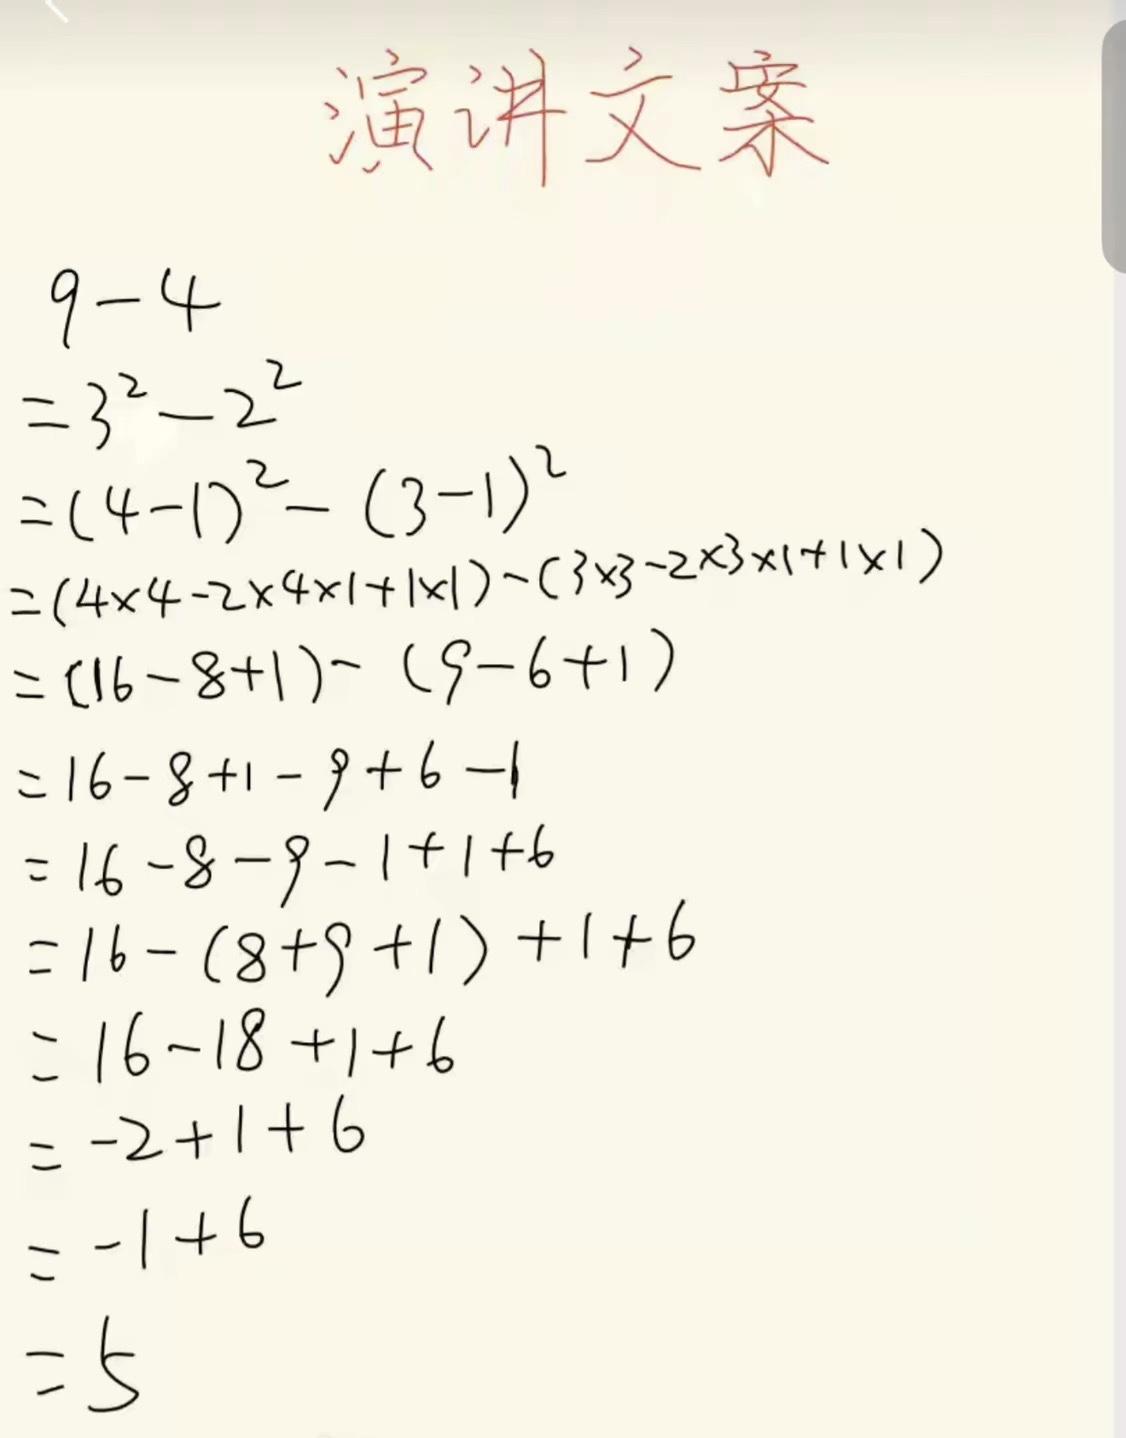 演讲文案
9-4
=3²-2²
=(4-1)²-(3-1)²
=(4×4-2×4×1+1×1)-(3×3-2×3×1+1×1)
=(16-8+1)-(9-6+1)
=16-8+1-9+6-1
=16-8-9-1+1+6
=16-(8+9+1)+1+6
=16-18+1+6
=-2+1+6
=-1+6
=5